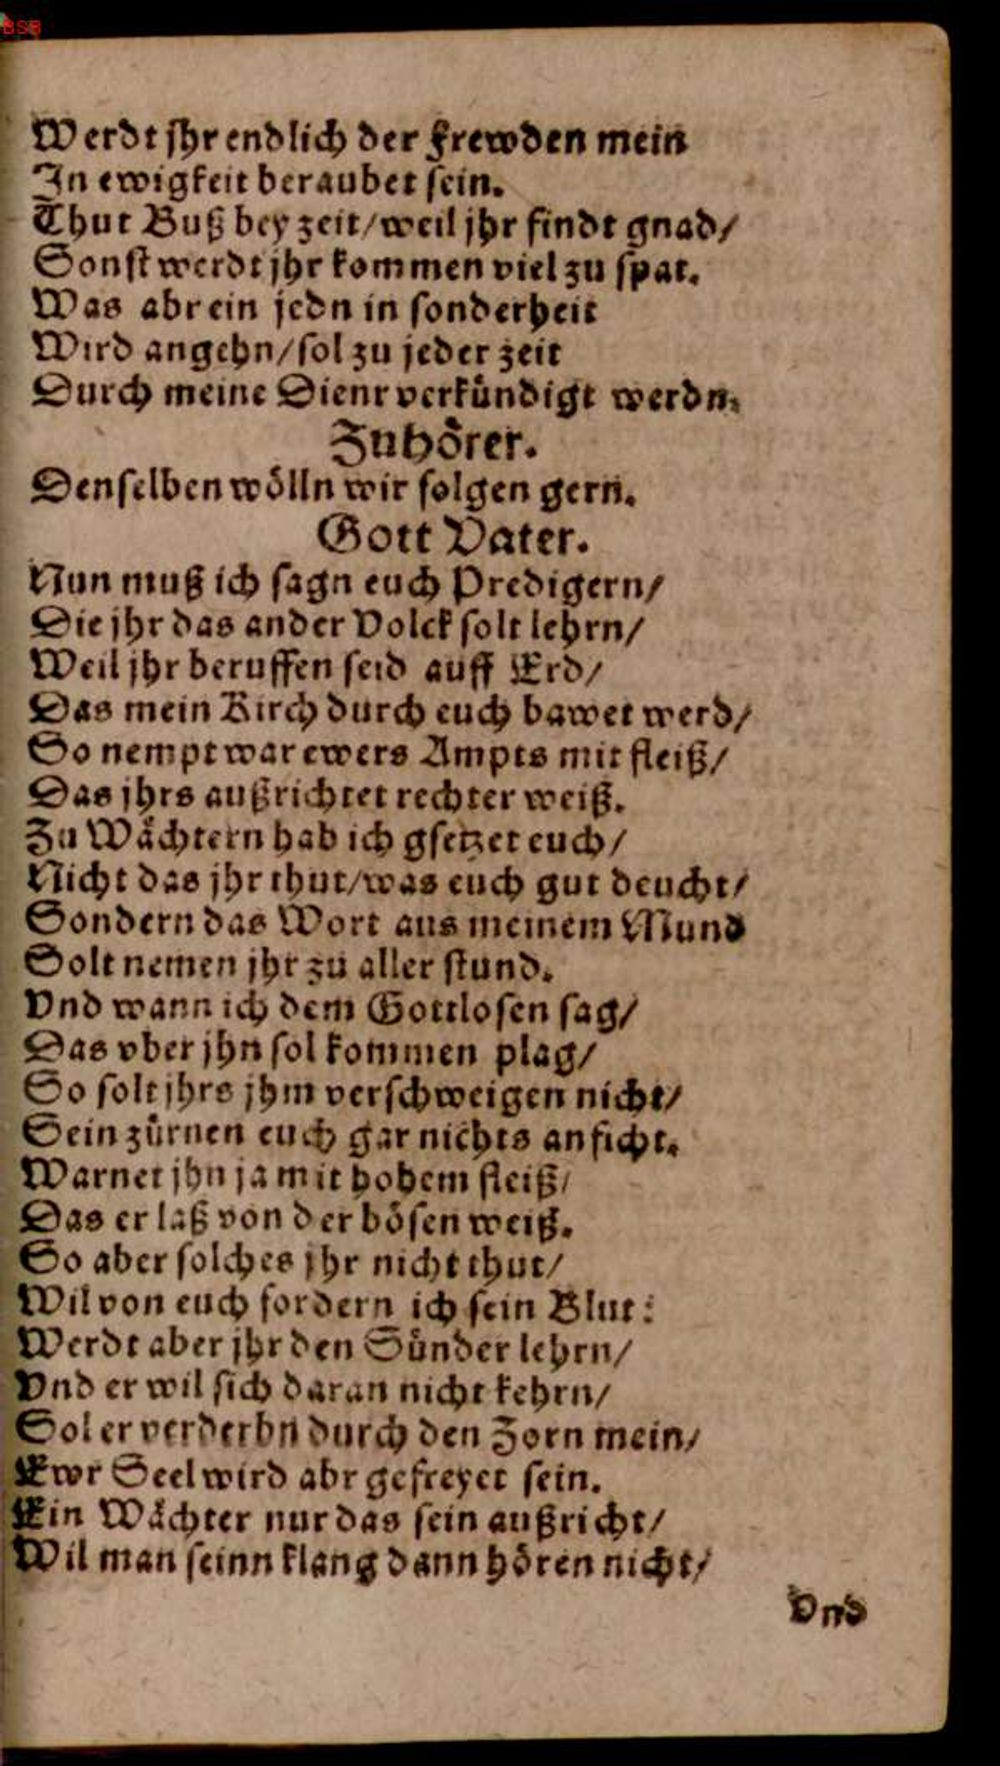 BSB
Werdt jhr endlich der frewden mein
In ewigkeit beraubet sein.
Thut Buß bey zeit/weil jhr findt gnad/
Sonst werdt jhr kommen viel zu spat.
Was abr ein jedn in sonderheit
Wird angehn/sol zu jeder zeit
Durch meine Dienr verkündigt werdn.
Zuhörer.
Denselben wölln wir folgen gern.
Gott Vater.
Nun muß ich sagn euch Predigern/
Die jhr das ander Volck solt lehrn/
Weil jhr beruffen seid auff Erd/
Das mein Kirch durch euch bawet werd/
So nempt war ewers Ampts mit fleiß/
Das jhrs außrichtet rechter weiß.
Zu Wächtern hab ich gsetzet euch/
Nicht das jhr thut/was euch gut deucht/
Sondern das Wort aus meinem Mund
Solt nemen jhr zu aller stund.
Vnd wann ich dem Gottlosen sag/
Das vber jhn sol kommen plag/
So solt jhrs jhm verschweigen nicht/
Sein zürnen euch gar nichts anficht.
Warnet jhn ja mit hohem fleiß/
Das er laß von der bösen weiß.
So aber solches jhr nicht thut/
Wil von euch fordern ich sein Blut:
Werdt aber jhr den Sünder lehrn/
Vnd er wil sich daran nicht kehrn/
Sol er verderbn durch den Zorn mein/
Ewr Seel wird abr gefreyet sein.
Ein Wächter nur das sein außricht/
Wil man seinn klang dann hören nicht/
Vnd